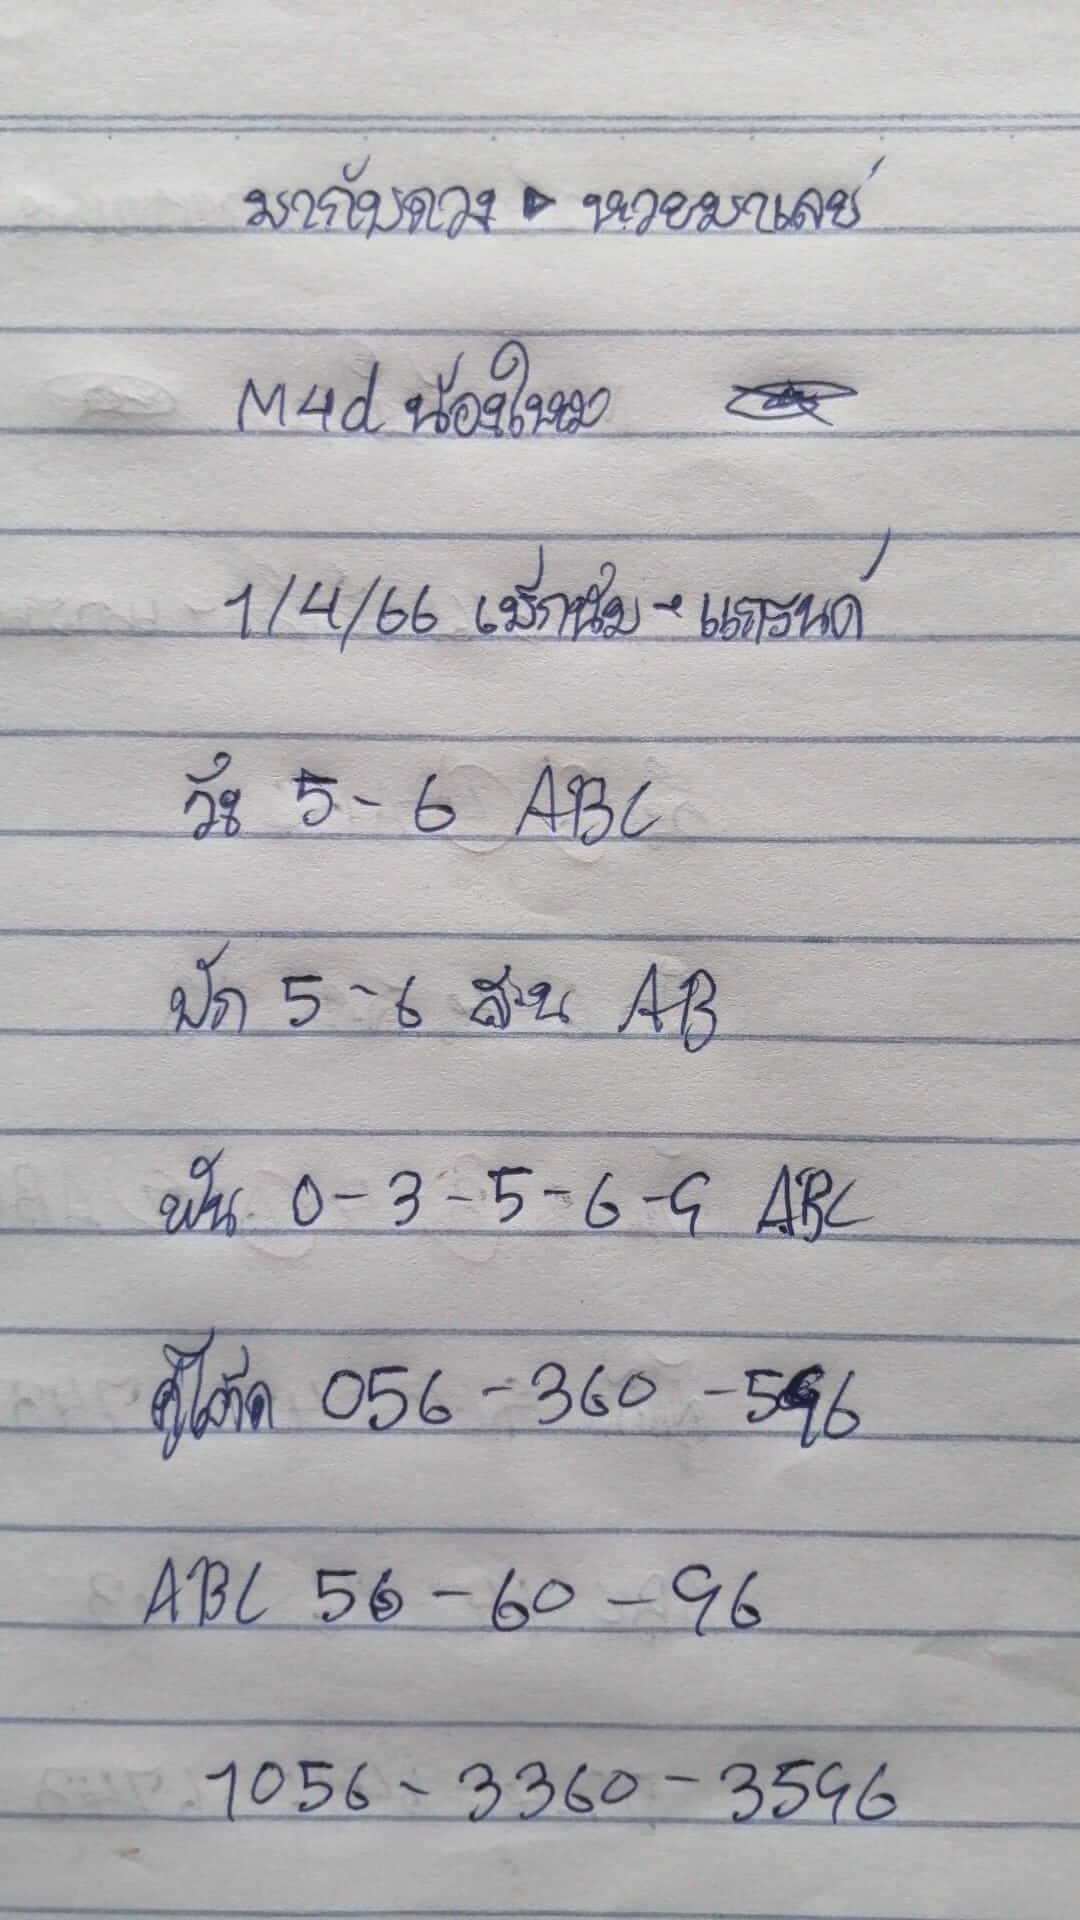 มากับดวง ▶ หวยมาเลย์
M4d น้องใหม
1/4/66 เม็กนั่ม - แกรนด์
วิ่ง 5 - 6 ABC
ปัก 5 - 6 สน AB
ฟัน 0 - 3 - 5 - 6 - 9 ABC
056 - 360 - 596
ABC 56 - 60 - 96
1056 - 3360 - 3596